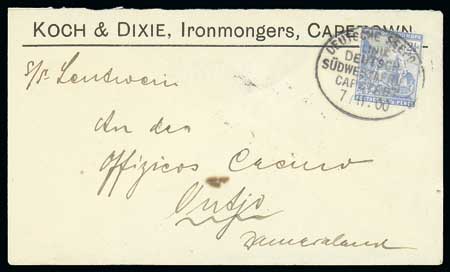 KOCH & DIXIE, Ironmongers, CAPETOWN.
DEUTSCHE SEEPO
LINIE
DEUTSCH
SÜDWESTAFRIKA
CAPSTADT
s/s Leutwein
An das
Offiziers Casino
Outjo
Damaraland